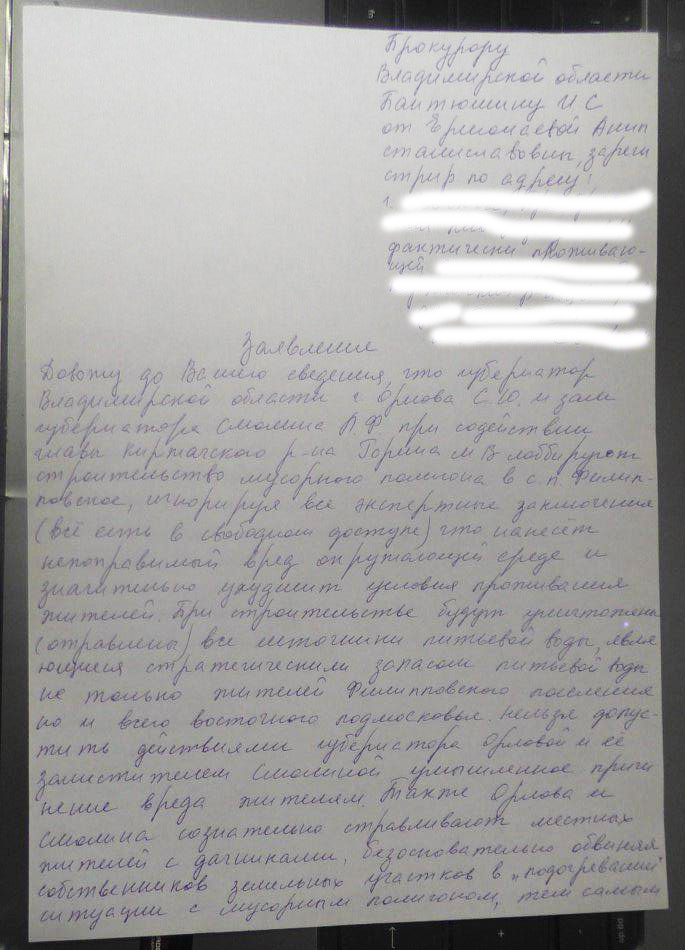 Прокурору
Владимирской области
Пантюшину И С
от Ермолаевой Анны
Станиславовны, зареги
стрир по адресу:
г
фактически проживаю-
щей
Заявление
Довожу до Вашего сведения, что губернатор
Владимирской области г Орлова С.Ю. и зам
губернатора Смолина Л.Ф при содействии
главы Киржачского р-на Горина М В лоббируют
строительство мусорного полигона в с.п. Филип-
повское, игнорируя все экспертные заключения
(всё есть в свободном доступе) что нанесёт
непоправимый вред окружающей среде и
значительно ухудшит условия проживания
жителей. При строительстве будут уничтожены
(отравлены) все источники питьевой воды, явля
ющиеся стратегическим запасом питьевой воды
не только жителей Филипповского поселения
но и всего восточного подмосковья. Нельзя допус-
тить действиями губернатора Орловой и её
заместителем Смолиной умышленное причи
нение вреда жителям. Также Орлова и
Смолина сознательно стравливают местных
жителей с дачниками, безосновательно обвиняя
собственников земельных участков в "подогревании"
ситуации с мусорным полигоном, тем самым